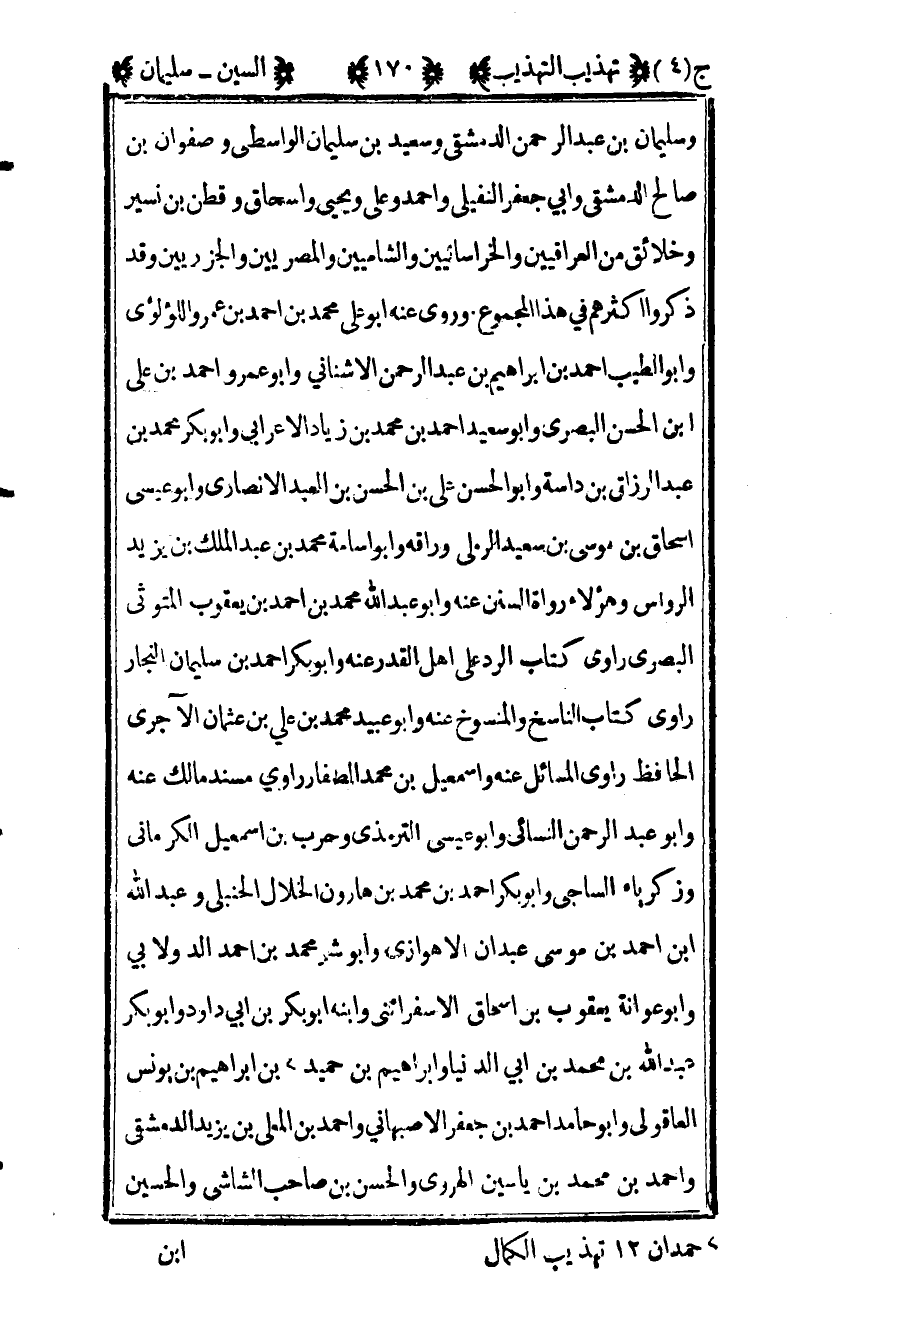 ج(٤) تهذيب التهذيب ١٧٠ السين - سليمان
وسليمان بن عبدالرحمن الدمشقي وسعيد بن سليمان الواسطى وصفوان بن
صالح الدمشقي وابي جعفر النفيلي واحمد وعلى ويحيى واسحاق وقطن بن نسير
وخلائق من العراقيين والخراسانيين والشاميين والمصريين والجزريين وقد
ذكروا اكثرهم في هذا المجموع. وروى عنه ابو على محمد بن احمد بن عمرو اللؤلؤى
وابوالطيب احمد بن ابراهيم بن عبدالرحمن الاشناني وابو عمرو احمد بن على
ابن الحسن البصرى وابوسعيد احمد بن محمد بن زياد الاعرابي وابوبكر محمد بن
عبدالرزاق بن داسة وابوالحسن علي بن الحسن بن العبد الانصارى وابوعيسى
اسحاق بن موسى بن سعيد الرملي وراقه وابواسامة محمد بن عبدالملك بن يزيد
الرواس وهؤلاء رواة السنن عنه وابوعبدالله محمد بن احمد بن يعقوب المتوثى
البصرى راوى كتاب الرد على اهل القدر عنه وابوبكر احمد بن سليمان النجار
راوى كتاب الناسخ والمنسوخ عنه وابوعبيد محمد بن علي بن عثمان الآجرى
الحافظ راوى المسائل عنه واسمعيل بن محمد الصفار راوي مسند مالك عنه
وابو عبد الرحمن النسائى وابوعيسى الترمذى وحرب بن اسمعيل الكرمانى
وزكرياء الساجى وابوبكر احمد بن محمد بن هارون الخلال الحنبلى وعبدالله
ابن احمد بن موسى عبدان الاهوازى وابو بشر محمد بن احمد الدولابي
وابوعوانة يعقوب بن اسحاق الاسفرائنى وابنه ابوبكر بن ابي داود وابوبكر
عبدالله بن محمد بن ابي الدنيا وابراهيم بن حميد > بن ابراهيم بن يونس
العاقولى وابوحامد احمد بن جعفر الاصبهاني واحمد بن المعلى بن يزيد الدمشقى
واحمد بن محمد بن ياسين الهروى والحسن بن صاحب الشاشى والحسين
> حمدان ١٢ تهذيب الكمال
ابن